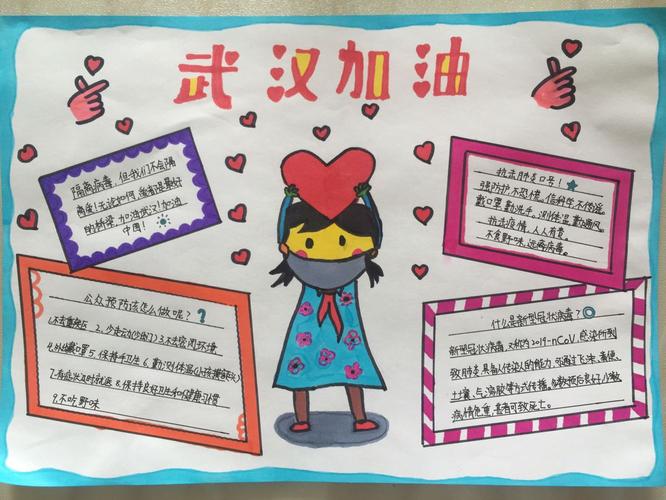 武汉加油
隔离病毒,但我们不会隔
离爱!无论如何
的桥梁 加油武汉!加油
中国!
抗击肺炎口号!
强防护不恐慌。信科学不传谣。
戴口罩 勤洗手。测体温 勤
抗击疫情,人人有责。
不食野味,远离病毒。
公众预防该怎么做呢?
1.不去重疫区 2.少走动(少出门) 3.不去密闭环境
4.外出戴口罩 5.保持手卫生 6.勤测体温
7.有症状及时就医 8.保持良好卫生和健康习惯
9.不吃野味
什么是新型冠状病毒?
新型冠状病毒,又称为2019-nCoV,感染后可
致肺炎 具备人传染人的能力。可通过飞沫、粪便、
土壤、气溶胶等方式传播。多数预后良好,少数
病情危重,甚者可致死亡。